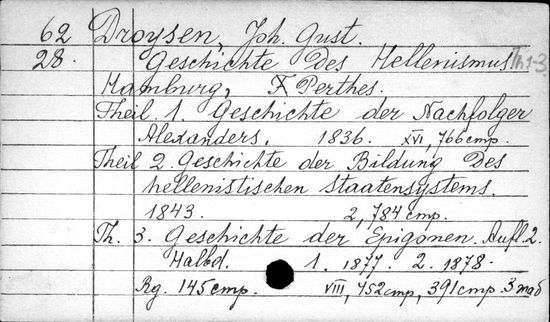 62 Droysen, Joh. Gust.
28. Geschichte Des Hellenismus Th.1-3
Hamburg, F Perthes.
Theil. 1. Geschichte der Nachfolger
Alexanders, 1836. XVI, 766 стр.
Theil 2. Geschichte der Bildung Des
hellenistischen Staatensystems.
1843. 2, 784 стр.
Th. 3. Geschichte der Epigonen. Aufl. 2.
Halbd. 1. 1877. 2. 1878.
Rg. 145 стр. VIII, 452 стр, 391 стр.